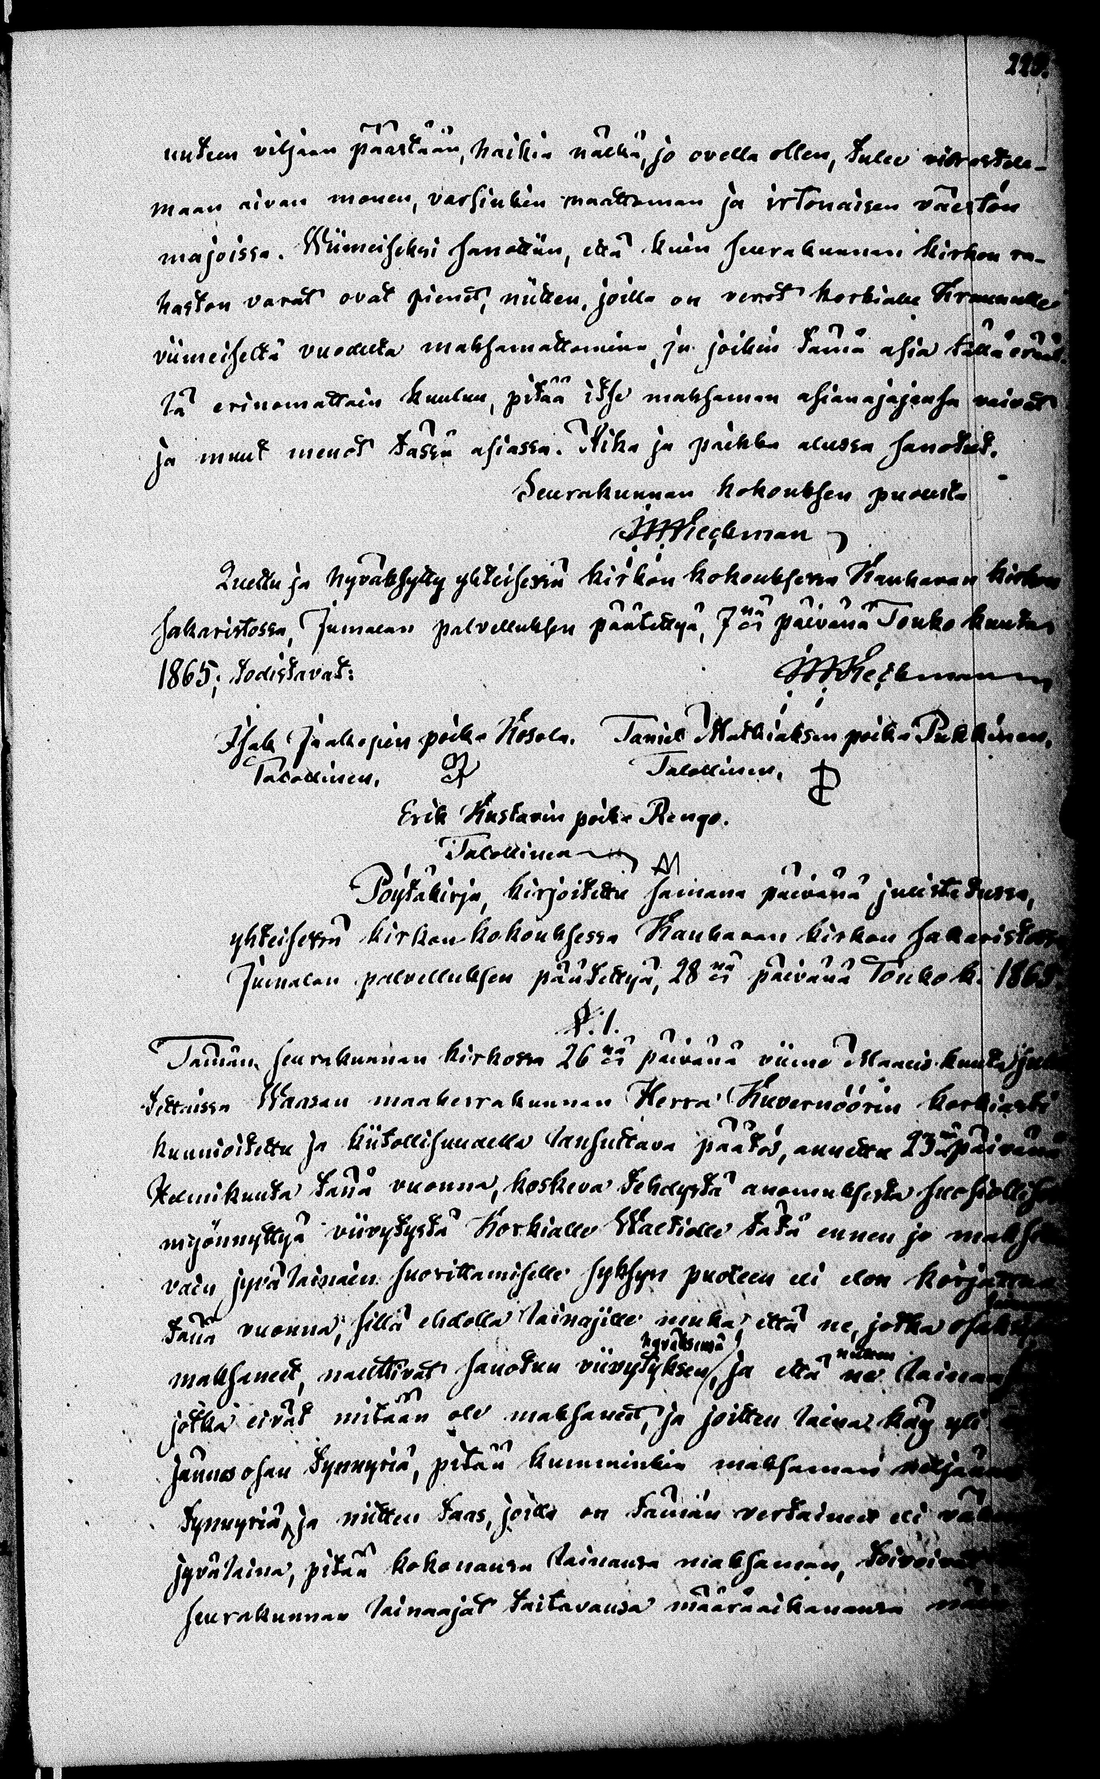 uuteen viljaan päästään, haikia nälkä, jo ovella ollen, tulee vierastele-
maan aivan monen, varsinkin maattoman ja irtonaisen väestön
majoissa. Wiimeiseksi sanottiin, että kuin seurakunnan kirkon ra-
haston varat ovat pienet, niitten, joilla on verot korkialle Kruunulle
viimeiseltä vuodelta maksamattomina, ja joihin tämä asia tällä erää
tä erinomattain kuuluu, pitää itse maksaman asianajajansa vaivat
ja muut menot tässä asiassa. Aika ja paikka alussa sanotut.
Seurakunnan kokouksen puolesta
Luettu ja hyväksytty yhteisessä kirkon kokouksessa Kauhavan kirkon
sakaristossa, Jumalan palvelluksen päätettyä, 7nä päivänä Touko kuuta
1865; todistavat:
Isak Jaakopin poika Kosola. Taniel Mathiaksen poika Pukkinen.
Talollinen. Talollinen.
Erik Kustavin poika Rengo.
Talollinen
Pöytäkirja, kirjoitettu samana päivänä julistetussa,
yhteisessä kirkon kokouksessa Kauhavan kirkon sakaristossa
Jumalan palvelluksen päätettyä, 28nä päivänä Touko k. 1865.
§. 1.
Tämän seurakunnan kirkossa 26nä päivänä viime Maalis kuuta
tettaissa Waasan maaherrakunnan Herra Kuvernöörin korkiasti
kunnioitettu ja kiitollisuudella lausuttava päätös, annettu 23nä päivänä
Helmikuuta tänä vuonna, koskeva tehdystä anomuksesta suosiollise
myönnyttyä viivytystä Korkialle Waltiolle tätä ennen jo maksa
vain jyvälainain suorittamiselle syksyn puoleen eli elon korjattua
tänä vuonna, sillä ehdolla lainajille muka, että ne, jotka
maksaneet, nauttivat sanotun viivytyksen hyväksensä, ja että niitten lainaa
jotka eivät mitään ole maksaneet, ja joitten laina käy yli
jännösohan tynnyriä, pitää kumminkin maksaman neljännen
tynnyriä, ja niitten taas, joilla on tämän vertainen eli vä
jyvälaina, pitää kokonansa lainansa maksaman, toivoivat
seurakunnan lainaajat taitavansa määräaikanansa